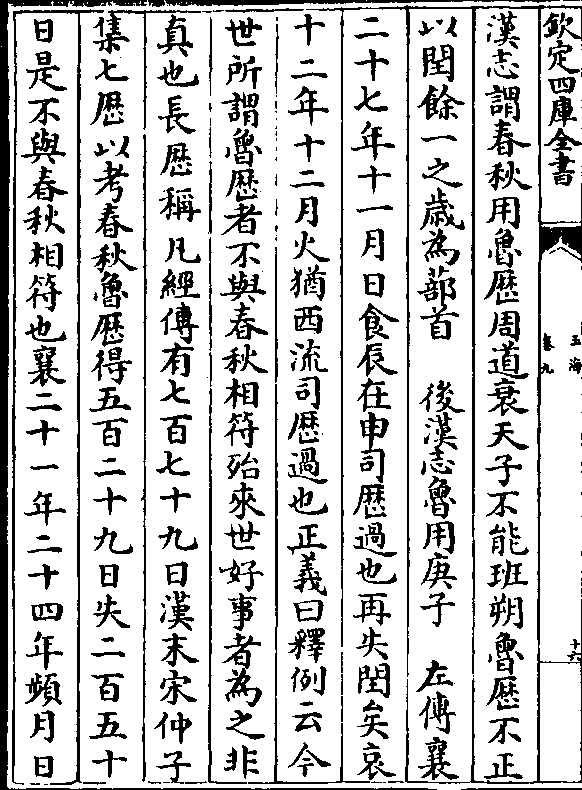 欽定四庫全書
玉海
卷九
十六
漢志謂春秋用魯厯周道衰天子不能班朔魯厯不正
以閏餘一之歳為蔀首　後漢志魯用庚子　左傳襄
二十七年十一月日食辰在申司厯過也再失閏矣哀
十二年十二月火猶西流司厯過也正義曰釋例云今
世所謂魯厯者不與春秋相符殆來世好事者為之非
真也長厯稱凡經傳有七百七十九日漢末宋仲子
集七厯以考春秋魯厯得五百二十九日失二百五十
日是不與春秋相符也襄二十一年二十四年頻月日